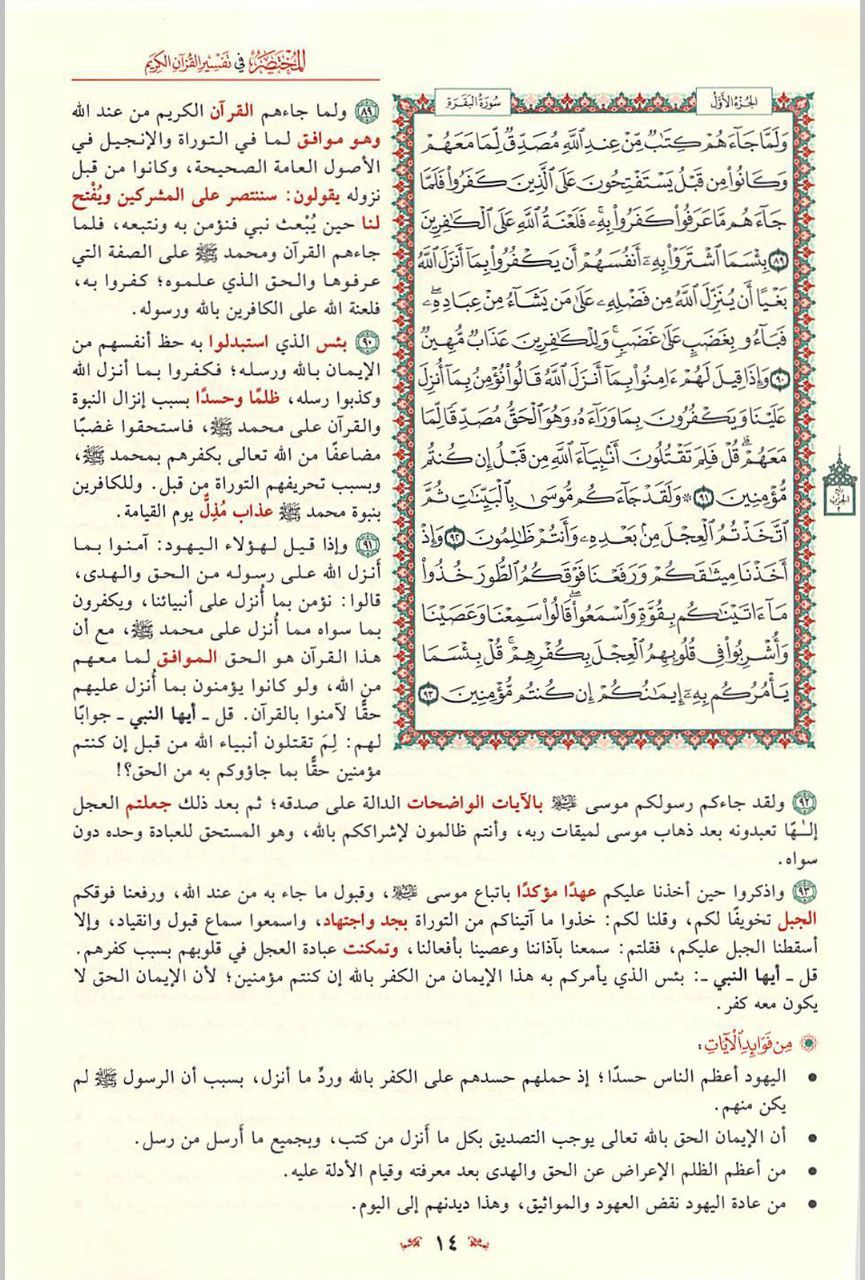 المُخْتَصَرُ في تَفْسِيرِ القُرْآنِ الكَرِيمِ
الجُزءُ الأَوَّلُ
سُورَةُ البَقَرَةِ
وَلَمَّا جَآءَهُمْ كِتَٰبٌ مِّنْ عِندِ ٱللَّهِ مُصَدِّقٌ لِّمَا مَعَهُمْ
وَكَانُواْ مِن قَبْلُ يَسْتَفْتِحُونَ عَلَى ٱلَّذِينَ كَفَرُواْ فَلَمَّا
جَآءَهُم مَّا عَرَفُواْ كَفَرُواْ بِهِۦۚ فَلَعْنَةُ ٱللَّهِ عَلَى ٱلْكَٰفِرِينَ
٨٩ بِئْسَمَا ٱشْتَرَوْاْ بِهِۦٓ أَنفُسَهُمْ أَن يَكْفُرُواْ بِمَآ أَنزَلَ ٱللَّهُ
بَغْيًا أَن يُنَزِّلَ ٱللَّهُ مِن فَضْلِهِۦ عَلَىٰ مَن يَشَآءُ مِنْ عِبَادِهِۦۖ
فَبَآءُو بِغَضَبٍ عَلَىٰ غَضَبٍۚ وَلِلْكَٰفِرِينَ عَذَابٌ مُّهِينٌ
٩٠ وَإِذَا قِيلَ لَهُمْ ءَامِنُواْ بِمَآ أَنزَلَ ٱللَّهُ قَالُواْ نُؤْمِنُ بِمَآ أُنزِلَ
عَلَيْنَا وَيَكْفُرُونَ بِمَا وَرَآءَهُۥ وَهُوَ ٱلْحَقُّ مُصَدِّقًا لِّمَا
مَعَهُمْۗ قُلْ فَلِمَ تَقْتُلُونَ أَنۢبِيَآءَ ٱللَّهِ مِن قَبْلُ إِن كُنتُم
مُّؤْمِنِينَ ٩١ ۞ وَلَقَدْ جَآءَكُم مُّوسَىٰ بِٱلْبَيِّنَٰتِ ثُمَّ
ٱتَّخَذْتُمُ ٱلْعِجْلَ مِنۢ بَعْدِهِۦ وَأَنتُمْ ظَٰلِمُونَ ٩٢ وَإِذْ
أَخَذْنَا مِيثَٰقَكُمْ وَرَفَعْنَا فَوْقَكُمُ ٱلطُّورَ خُذُواْ
مَآ ءَاتَيْنَٰكُم بِقُوَّةٍ وَٱسْمَعُواْۖ قَالُواْ سَمِعْنَا وَعَصَيْنَا
وَأُشْرِبُواْ فِى قُلُوبِهِمُ ٱلْعِجْلَ بِكُفْرِهِمْۚ قُلْ بِئْسَمَا
يَأْمُرُكُم بِهِۦٓ إِيمَٰنُكُمْ إِن كُنتُم مُّؤْمِنِينَ ٩٣
٨٩ ولما جاءهم القرآن الكريم من عند الله
وهو موافق لما في التوراة والإنجيل في
الأصول العامة الصحيحة، وكانوا من قبل
نزوله يقولون: سننتصر على المشركين ويُفْتح
لنا حين يُبْعث نبي فنؤمن به ونتبعه، فلما
جاءهم القرآن ومحمد ﷺ على الصفة التي
عرفوها والحق الذي علموه؛ كفروا به،
فلعنة الله على الكافرين بالله ورسوله.
٩٠ بئس الذي استبدلوا به حظ أنفسهم من
الإيمان بالله ورسله؛ فكفروا بما أنزل الله
وكذبوا رسله، ظلمًا وحسدًا بسبب إنزال النبوة
والقرآن على محمد ﷺ، فاستحقوا غضبًا
مضاعفًا من الله تعالى بكفرهم بمحمد ﷺ،
وبسبب تحريفهم التوراة من قبل. وللكافرين
بنبوة محمد ﷺ عذاب مُذِلٌّ يوم القيامة.
٩١ وإذا قيل لهؤلاء اليهود: آمنوا بما
أنزل الله على رسوله من الحق والهدى،
قالوا: نؤمن بما أُنزل على أنبيائنا، ويكفرون
بما سواه مما أُنزل على محمد ﷺ، مع أن
هذا القرآن هو الحق الموافق لما معهم
من الله، ولو كانوا يؤمنون بما أُنزل عليهم
حقًّا لآمنوا بالقرآن. قل ـ أيها النبي ـ جوابًا
لهم: لِمَ تقتلون أنبياء الله من قبل إن كنتم
مؤمنين حقًّا بما جاؤوكم به من الحق؟!
٩٢ ولقد جاءكم رسولكم موسى عليه السلام بالآيات الواضحات الدالة على صدقه؛ ثم بعد ذلك جعلتم العجل
إلـٰهًا تعبدونه بعد ذهاب موسى لميقات ربه، وأنتم ظالمون لإشراككم بالله، وهو المستحق للعبادة وحده دون
سواه.
٩٣ واذكروا حين أخذنا عليكم عهدًا مؤكدًا باتباع موسى عليه السلام، وقبول ما جاء به من عند الله، ورفعنا فوقكم
الجبل تخويفًا لكم، وقلنا لكم: خذوا ما آتيناكم من التوراة بجد واجتهاد، واسمعوا سماع قبول وانقياد، وإلا
أسقطنا الجبل عليكم، فقلتم: سمعنا بآذاننا وعصينا بأفعالنا، وتمكنت عبادة العجل في قلوبهم بسبب كفرهم.
قل ـ أيها النبي ـ: بئس الذي يأمركم به هذا الإيمان من الكفر بالله إن كنتم مؤمنين؛ لأن الإيمان الحق لا
يكون معه كفر.
مِن فَوَائِدِ الآيَاتِ:
• اليهود أعظم الناس حسدًا؛ إذ حملهم حسدهم على الكفر بالله وردِّ ما أنزل، بسبب أن الرسول ﷺ لم
يكن منهم.
• أن الإيمان الحق بالله تعالى يوجب التصديق بكل ما أَنزل من كتب، وبجميع ما أَرسل من رسل.
• من أعظم الظلم الإعراض عن الحق والهدى بعد معرفته وقيام الأدلة عليه.
• من عادة اليهود نقض العهود والمواثيق، وهذا ديدنهم إلى اليوم.
١٤